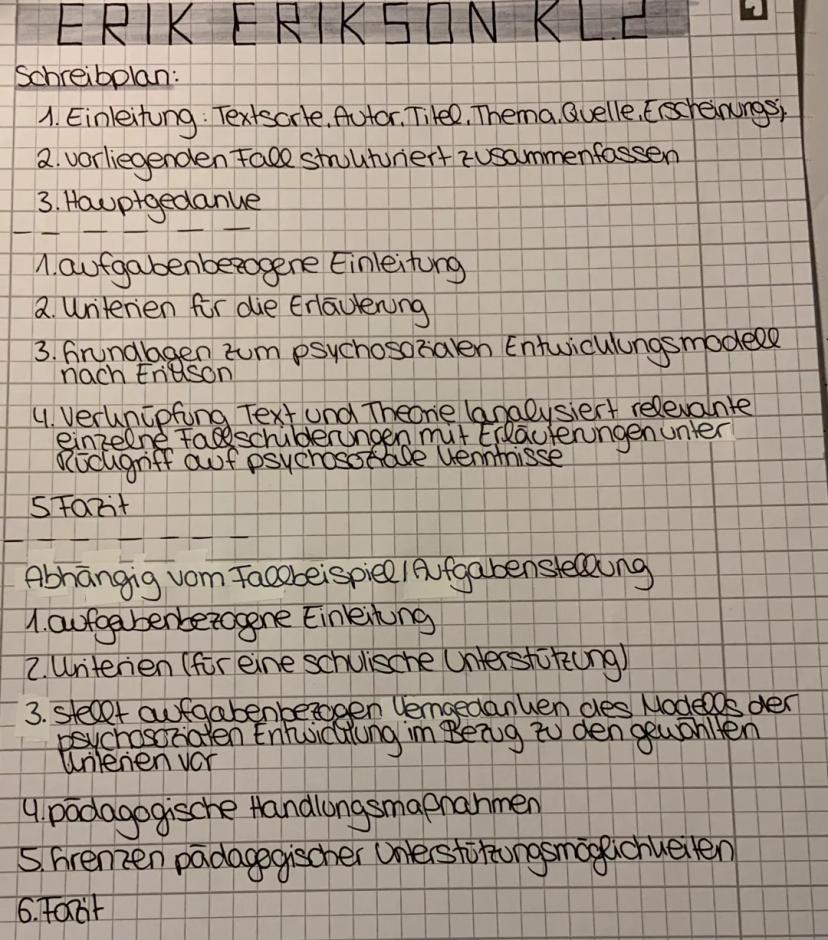 ERIK ERIKSON KL.2
Schreibplan:
1. Einleitung: Textsorte, Autor, Titel, Thema, Quelle, Erscheinungsj.
2. vorliegenden Fall strukturiert zusammenfassen
3. Hauptgedanke
1. aufgabenbezogene Einleitung
2. Kriterien für die Erläuterung
3. Grundlagen zum psychosozialen Entwicklungsmodell
nach Erikson
4. Verknüpfung Text und Theorie (analysiert relevante
einzelne Fallschilderungen mit Erläuterungen unter
Rückgriff auf psychosoziale Kenntnisse
5 Fazit
Abhängig vom Fallbeispiel/Aufgabenstellung
1. aufgabenbezogene Einleitung
2. Kriterien (für eine schulische Unterstützung)
3. stellt aufgabenbezogen Kerngedanken des Modells der
psychosozialen Entwicklung im Bezug zu den gewählten
Kriterien vor
4. pädagogische Handlungsmaßnahmen
5. Grenzen pädagegischer Unterstützungsmöglichkeiten
6. Fazit